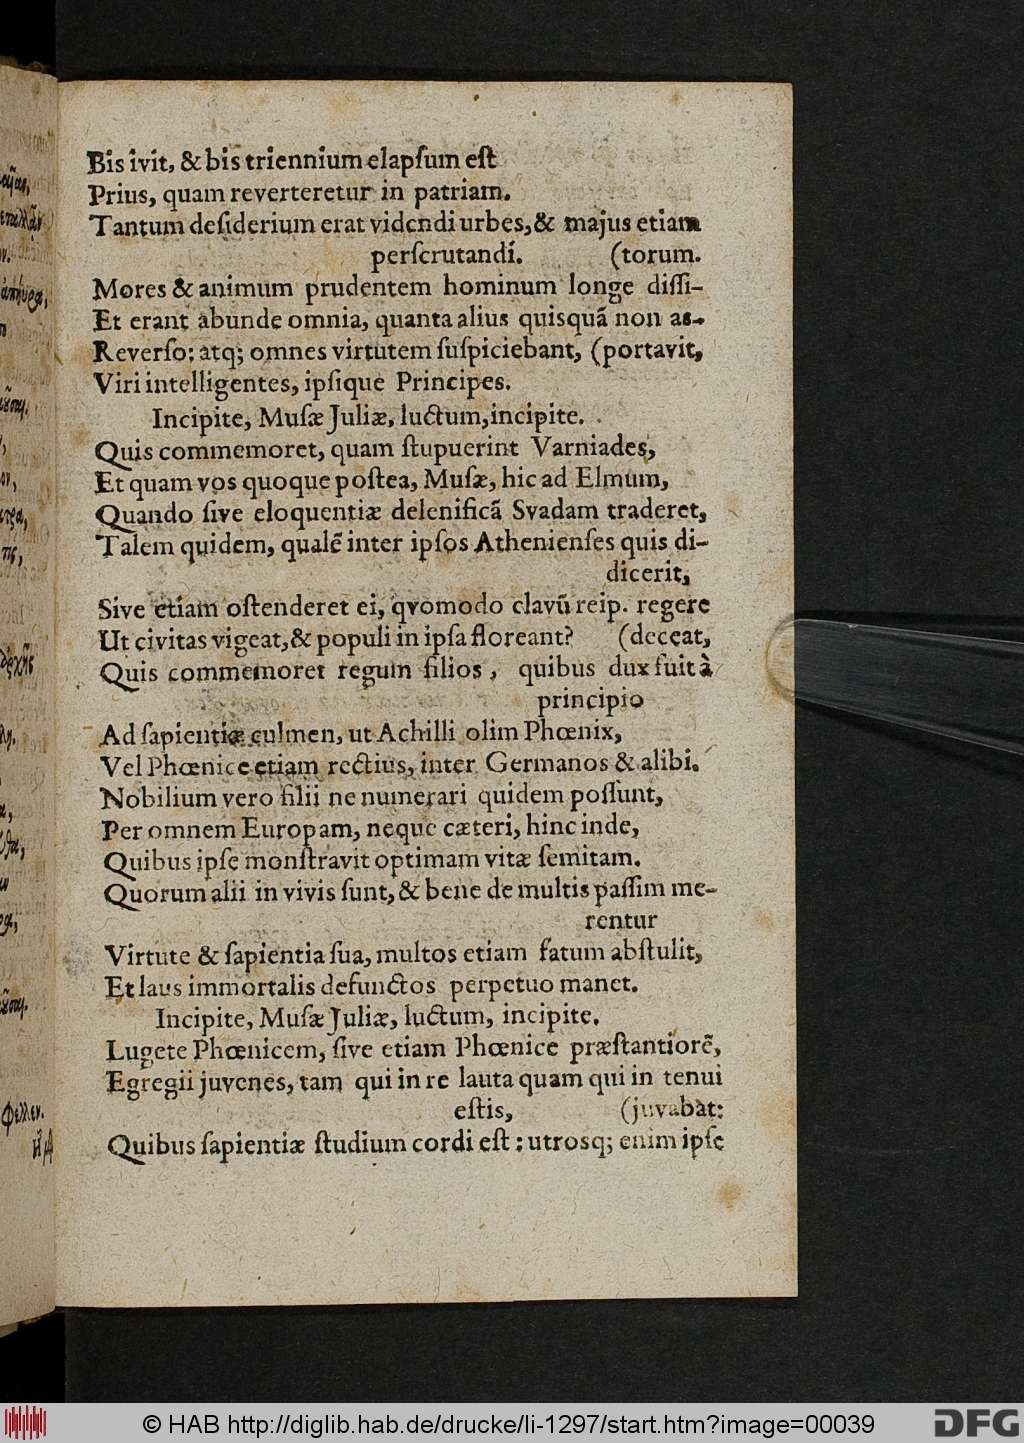 Bis ivit, & bis triennium elapſum eſt
Prius, quam reverteretur in patriam.
Tantum deſiderium erat videndi urbes, & majus etiam
perſcrutandi. (torum.
Mores & animum prudentem hominum longe diſſi-
Et erant abunde omnia, quanta alius quisquã non as-
Reverſo: atq; omnes virtutem ſuſpiciebant, (portavit,
Viri intelligentes, ipſique Principes.
Incipite, Muſæ Juliæ, luctum, incipite.
Quis commemoret, quam ſtupuerint Varniades,
Et quam vos quoque poſtea, Muſæ, hic ad Elmum,
Quando ſive eloquentiæ delenificã Svadam traderet,
Talem quidem, qualẽ inter ipſos Athenienſes quis di-
dicerit,
Sive etiam oſtenderet ei, qvomodo clavũ reip. regere
Ut civitas vigeat, & populi in ipſa floreant? (deceat,
Quis commemoret regum filios, quibus dux fuit à
principio
Ad ſapientiæ culmen, ut Achilli olim Phœnix,
Vel Phœnice etiam rectius, inter Germanos & alibi.
Nobilium vero filii ne numerari quidem poſſunt,
Per omnem Europam, neque cæteri, hinc inde,
Quibus ipſe monſtravit optimam vitæ ſemitam.
Quorum alii in vivis ſunt, & bene de multis paſſim me-
rentur
Virtute & ſapientia ſua, multos etiam fatum abſtulit,
Et laus immortalis defunctos perpetuo manet.
Incipite, Muſæ Juliæ, luctum, incipite.
Lugete Phœnicem, ſive etiam Phœnice præſtantiorẽ,
Egregii juvenes, tam qui in re lauta quam qui in tenui
eſtis, (juvabat:
Quibus ſapientiæ ſtudium cordi eſt: utrosq; enim ipſe
© HAB http://diglib.hab.de/drucke/li-1297/start.htm?image=00039
DFG